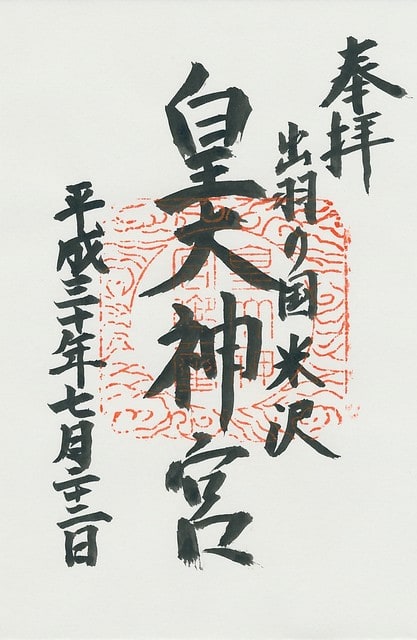 奉拝
出羽の国米沢
皇大神宮
平成三十年七月二十二日